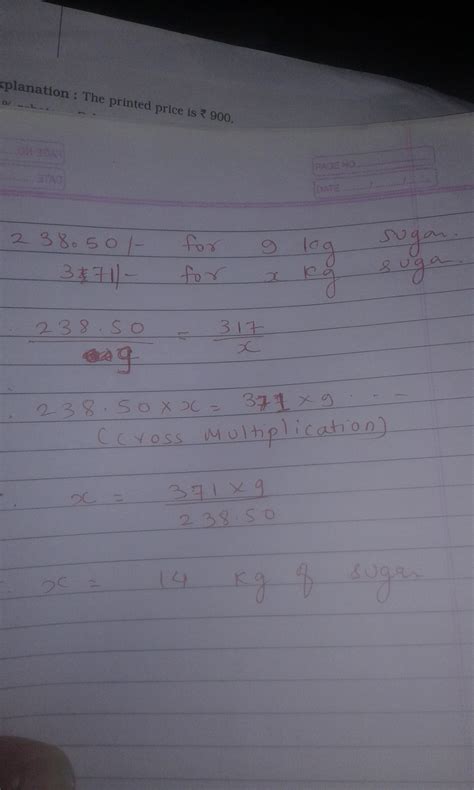 xplanation : The printed price is ₹ 900.
PAGE NO.
DATE
PAGE NO.
DATE / /
238.50/- for 9 kg sugar.
371/- for x kg sugar.
238.50 / 9 = 317 / x
238.50 × x = 371 × 9 ...
(Cross Multiplication)
x = 371 × 9 / 238.50
x = 14 kg of sugar